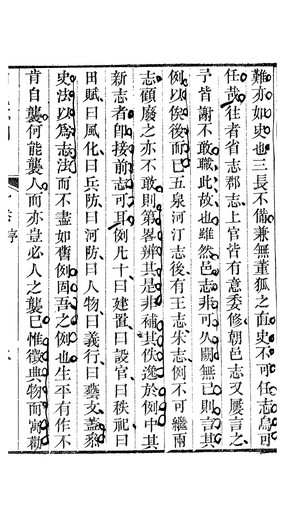 難亦如史也三長不備兼無董狐之直史不可任志烏可
任哉往者省志郡志上官皆有意委修朝邑志又屢言之
予皆謝不敢職此故也雖然邑志非可久闕無已則言其
例以俟後而已五泉河汀志後有王志朱志例不可繼兩
志顧廢之亦不敢則第畧辨其是非補其佚逸於例中其
新志者卽接前志可耳例凡十曰建置曰設官曰秩祀曰
田賦曰風化曰兵防曰河防曰人物曰義行曰藝文蓋黎
史法以為志法而不盡如舊例固吾之例也生平有作不
肯自襲何能襲人而亦豈必人之襲已惟徵典物而寓勸
序